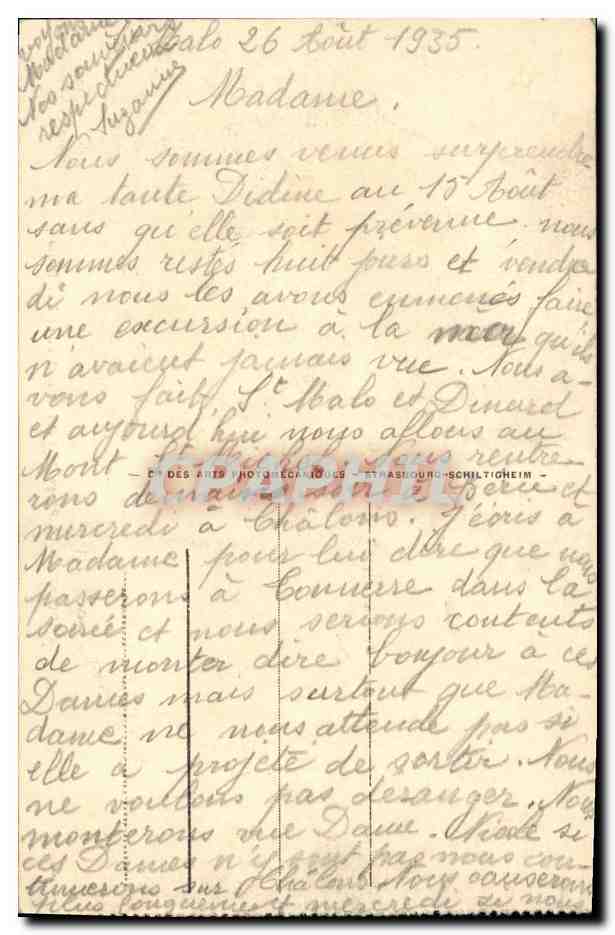 Malo 26 Août 1935.
Madame.
Nous sommes venus surprendre
ma tante Didine au 15 Août
sans qu'elle soit prévenue. nous
sommes restés huit jours et vendre
di nous les avons emmenés faire
une excursion à la mer qu'ils
n'avaient jamais vue. Nous a-
vons fait St Malo et Dinard
et aujourd'hui nous allons au
Mont St Michel. Nous rentre
CIE DES ARTS PHOTOMÉCANIQUES - STRASBOURG-SCHILTIGHEIM -
rons demain soir à et
mercredi à Châlons. J'écris à
Madame pour lui dire que nous
passerons à Tonnerre dans la
soirée et nous serions contents
de monter dire bonjour à ces
Dames mais surtout que Ma-
dame ne nous attende pas si
elle a projeté de sortir. Nous
ne voulons pas déranger. Nous
monterons rue Dame-Nicole si
ces Dames n'y sont pas nous con-
tinuerons sur Châlons. Nous causerons
plus longuement mercredi si nous
voyons
Madame
Nos souvenirs
respectueux
Suzanne
CPAPHIL